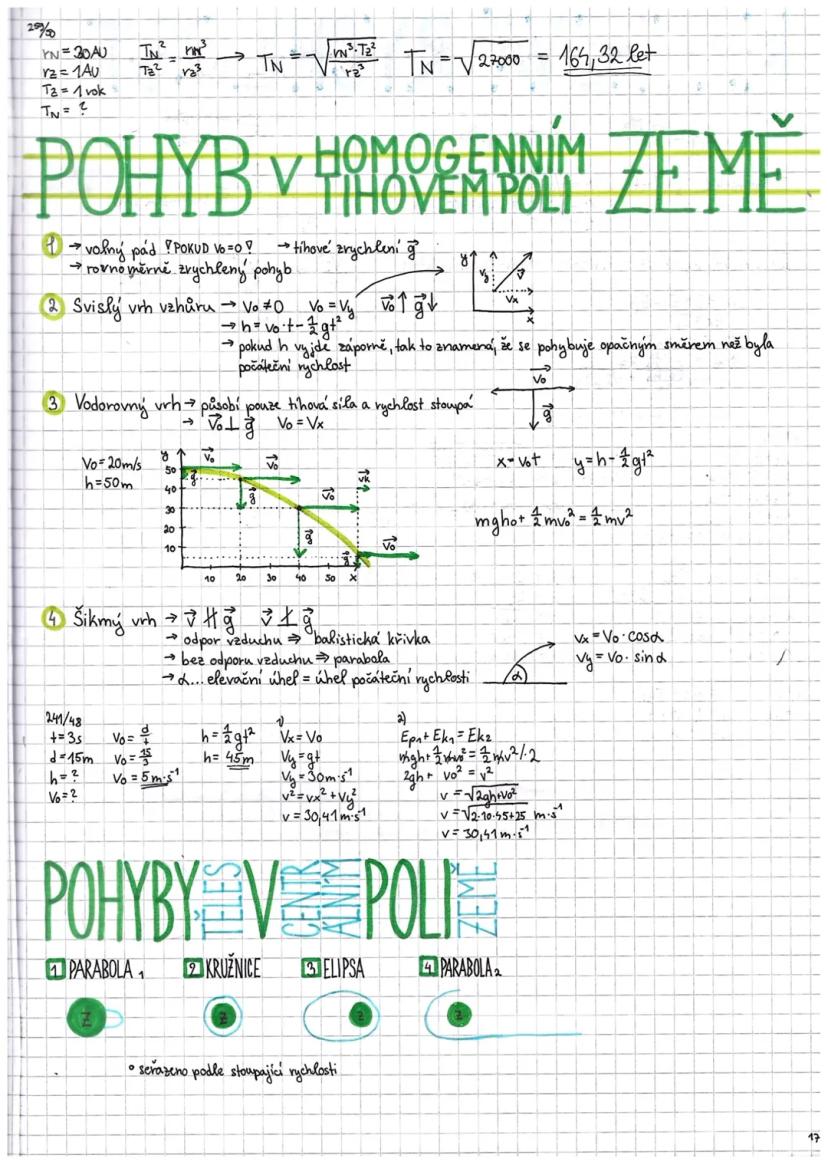 259/50
rN = 30AU
rz = 1AU
Tz = 1 rok
TN = ?
TN²/Tz² = rN³/rz³ → TN = √(rN³·Tz²/rz³) TN = √27000 = 164,32 let
POHYB V HOMOGENNÍM TÍHOVÉM POLI ZEMĚ
1 → volný pád !POKUD v₀=0! → tíhové zrychlení g⃗
→ rovnoměrně zrychlený pohyb
y vy v⃗ vx x
2 Svislý vrh vzhůru → v₀ ≠ 0 v₀ = vy v⃗₀↑ g⃗↓
→ h = v₀·t - ½gt²
→ pokud h vyjde záporně, tak to znamená, že se pohybuje opačným směrem než byla
počáteční rychlost
3 Vodorovný vrh → působí pouze tíhová síla a rychlost stoupá
→ v⃗₀ ⊥ g⃗ v₀ = vx
v⃗₀
g⃗
v₀ = 20m/s
h = 50m
y 50 40 30 20 10
v⃗₀ v⃗₀ v⃗₀ v⃗k v⃗₀
g⃗ g⃗ g⃗ g⃗
10 20 30 40 50 x
x = v₀t y = h - ½gt²
mgh₀ + ½mv₀² = ½mv²
4 Šikmý vrh → v⃗ ∦ g⃗ v⃗ ⊥̸ g⃗
→ odpor vzduchu ⇒ balistická křivka
→ bez odporu vzduchu ⇒ parabola
→ α... elevační úhel = úhel počáteční rychlosti
α
vx = v₀·cosα
vy = v₀·sinα
241/48
t = 3s
d = 15m
h = ?
v₀ = ?
v₀ = d/t
v₀ = 15/3
v₀ = 5m·s⁻¹
h = ½gt²
h = 45m
1)
vx = v₀
vy = gt
vy = 30m·s⁻¹
v² = vx² + vy²
v = 30,41m·s⁻¹
2)
Ep₁ + Ek₁ = Ek₂
mgh + ½mv₀² = ½mv² /·2
2gh + v₀² = v²
v = √(2gh+v₀²)
v = √(2·10·45+25) m·s⁻¹
v = 30,41m·s⁻¹
POHYBY TĚLES V CENTRÁLNÍM POLI ZEMĚ
1 PARABOLA₁ 2 KRUŽNICE 3 ELIPSA 4 PARABOLA₂
Z Z Z Z
° seřazeno podle stoupající rychlosti
17